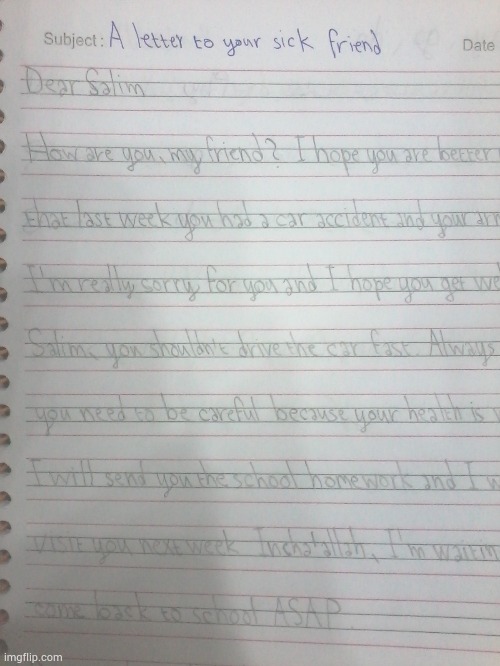 Subject: A letter to your sick friend Date
Dear Salim
How are you, my friend? I hope you are better
that last week you had a car accident and your
I'm really sorry for you and I hope you get
Salim, you shouldn't drive the car fast. Always
you need to be careful because your health is
I will send you the school homework and I
visit you next week Incha'allah, I'm
come back to school ASAP.
imgflip.com